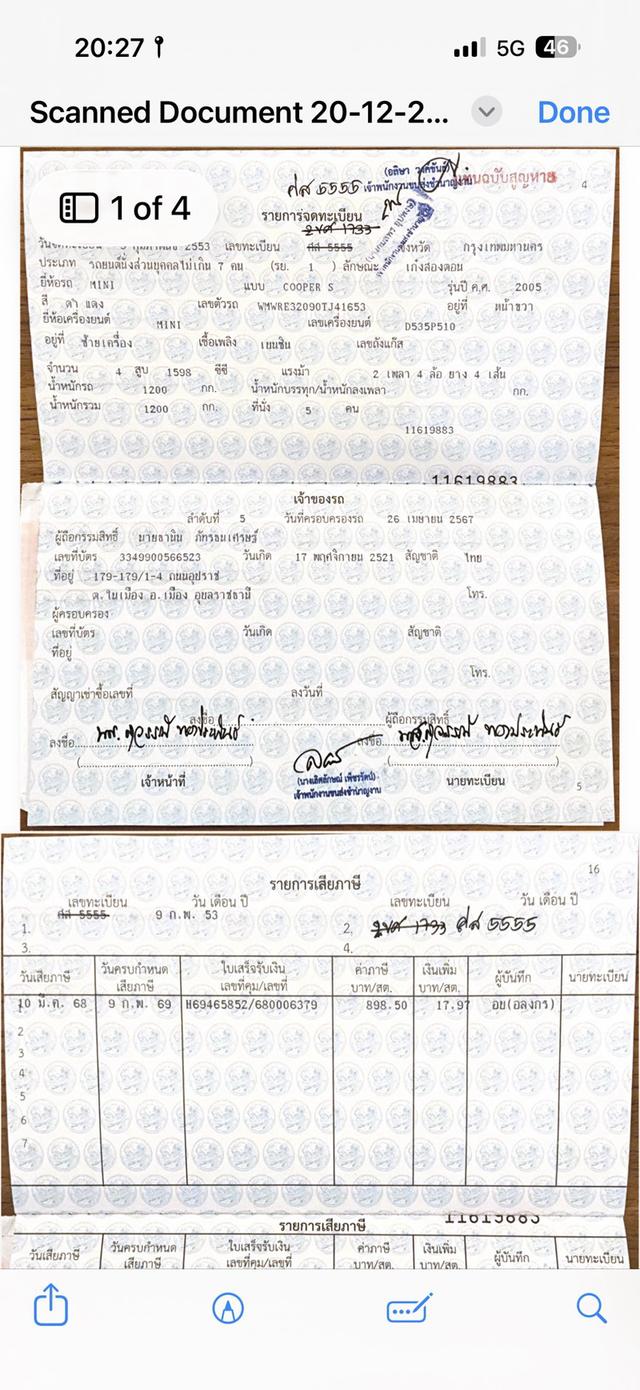 20:27
5G 46
Scanned Document 20-12-2... Done
1 of 4
4
ศส 5555
เจ้าพนักงานขนส่งชำนาญงาน
แทนฉบับสูญหาย
รายการจดทะเบียน
2553 เลขทะเบียน ศส 5555 จังหวัด กรุงเทพมหานคร
ประเภท รถยนต์นั่งส่วนบุคคลไม่เกิน 7 คน (รย. 1 ) ลักษณะ เก๋งสองตอน
ยี่ห้อรถ MINI แบบ COOPER S รุ่นปี ค.ศ. 2005
สี ดำ แดง เลขตัวรถ WMWRE32090TJ41653 อยู่ที่ หน้าขวา
ยี่ห้อเครื่องยนต์ MINI เลขเครื่องยนต์ D535P510
อยู่ที่ ซ้ายเครื่อง เชื้อเพลิง เบนซิน เลขถังแก๊ส
จำนวน 4 สูบ 1598 ซีซี แรงม้า 2 เพลา 4 ล้อ ยาง 4 เส้น
น้ำหนักรถ 1200 กก. น้ำหนักบรรทุก/น้ำหนักลงเพลา กก.
น้ำหนักรวม 1200 กก. ที่นั่ง 5 คน
11619883
11619883
เจ้าของรถ
ลำดับที่ 5 วันที่ครอบครองรถ 26 เมษายน 2567
ผู้ถือกรรมสิทธิ์ นายธานิน ภัทรธนเศรษฐ์
เลขที่บัตร 3349900566523 วันเกิด 17 พฤศจิกายน 2521 สัญชาติ ไทย
ที่อยู่ 179-179/1-4 ถนนอุปราช
ต.ในเมือง อ.เมือง อุบลราชธานี โทร.
ผู้ครอบครอง
เลขที่บัตร วันเกิด สัญชาติ
ที่อยู่
โทร.
สัญญาเช่าซื้อเลขที่ ลงวันที่
ลงชื่อ ผู้ถือกรรมสิทธิ์
ลงชื่อ ลงชื่อ
เจ้าหน้าที่ นายทะเบียน
เจ้าพนักงานขนส่งชำนาญงาน
5
16
รายการเสียภาษี
เลขทะเบียน วัน เดือน ปี เลขทะเบียน วัน เดือน ปี
1. ศส 5555 9 ก.พ. 53 2. ศส 5555
3. 4.
วันเสียภาษี วันครบกำหนดเสียภาษี ใบเสร็จรับเงิน เลขที่คุม/เลขที่ ค่าภาษี บาท/สต. เงินเพิ่ม บาท/สต. ผู้บันทึก นายทะเบียน
10 มี.ค. 68 9 ก.พ. 69 H6946585Z/680006379 898.50 17.97 อบ(อลงกร)
2
3
4
5
6
7
11619883
รายการเสียภาษี
วันเสียภาษี วันครบกำหนดเสียภาษี ใบเสร็จรับเงิน เลขที่คุม/เลขที่ ค่าภาษี บาท/สต. เงินเพิ่ม บาท/สต. ผู้บันทึก นายทะเบียน